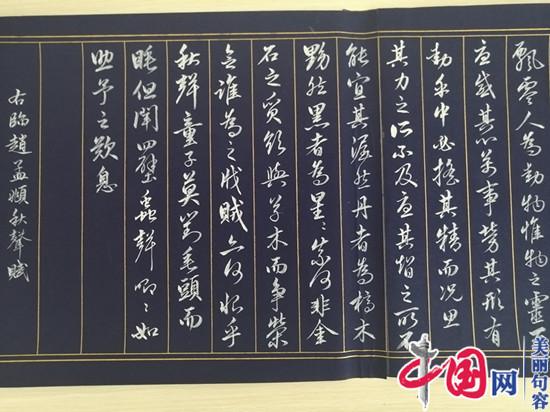 飄零人為動物惟物之靈百
憂感其心萬事勞其形有
動乎中必搖其精而況思
其力之所不及憂其智之所不
能宜其渥然丹者為槁木
黟然黑者為星〻奈何非金
石之質欲與草木而爭榮
念誰為之戕賊亦何恨乎
秋聲童子莫對垂頭而
睡但聞四壁蟲聲唧〻如
助予之歎息
右臨趙孟頫秋聲賦
中国网
美丽句容